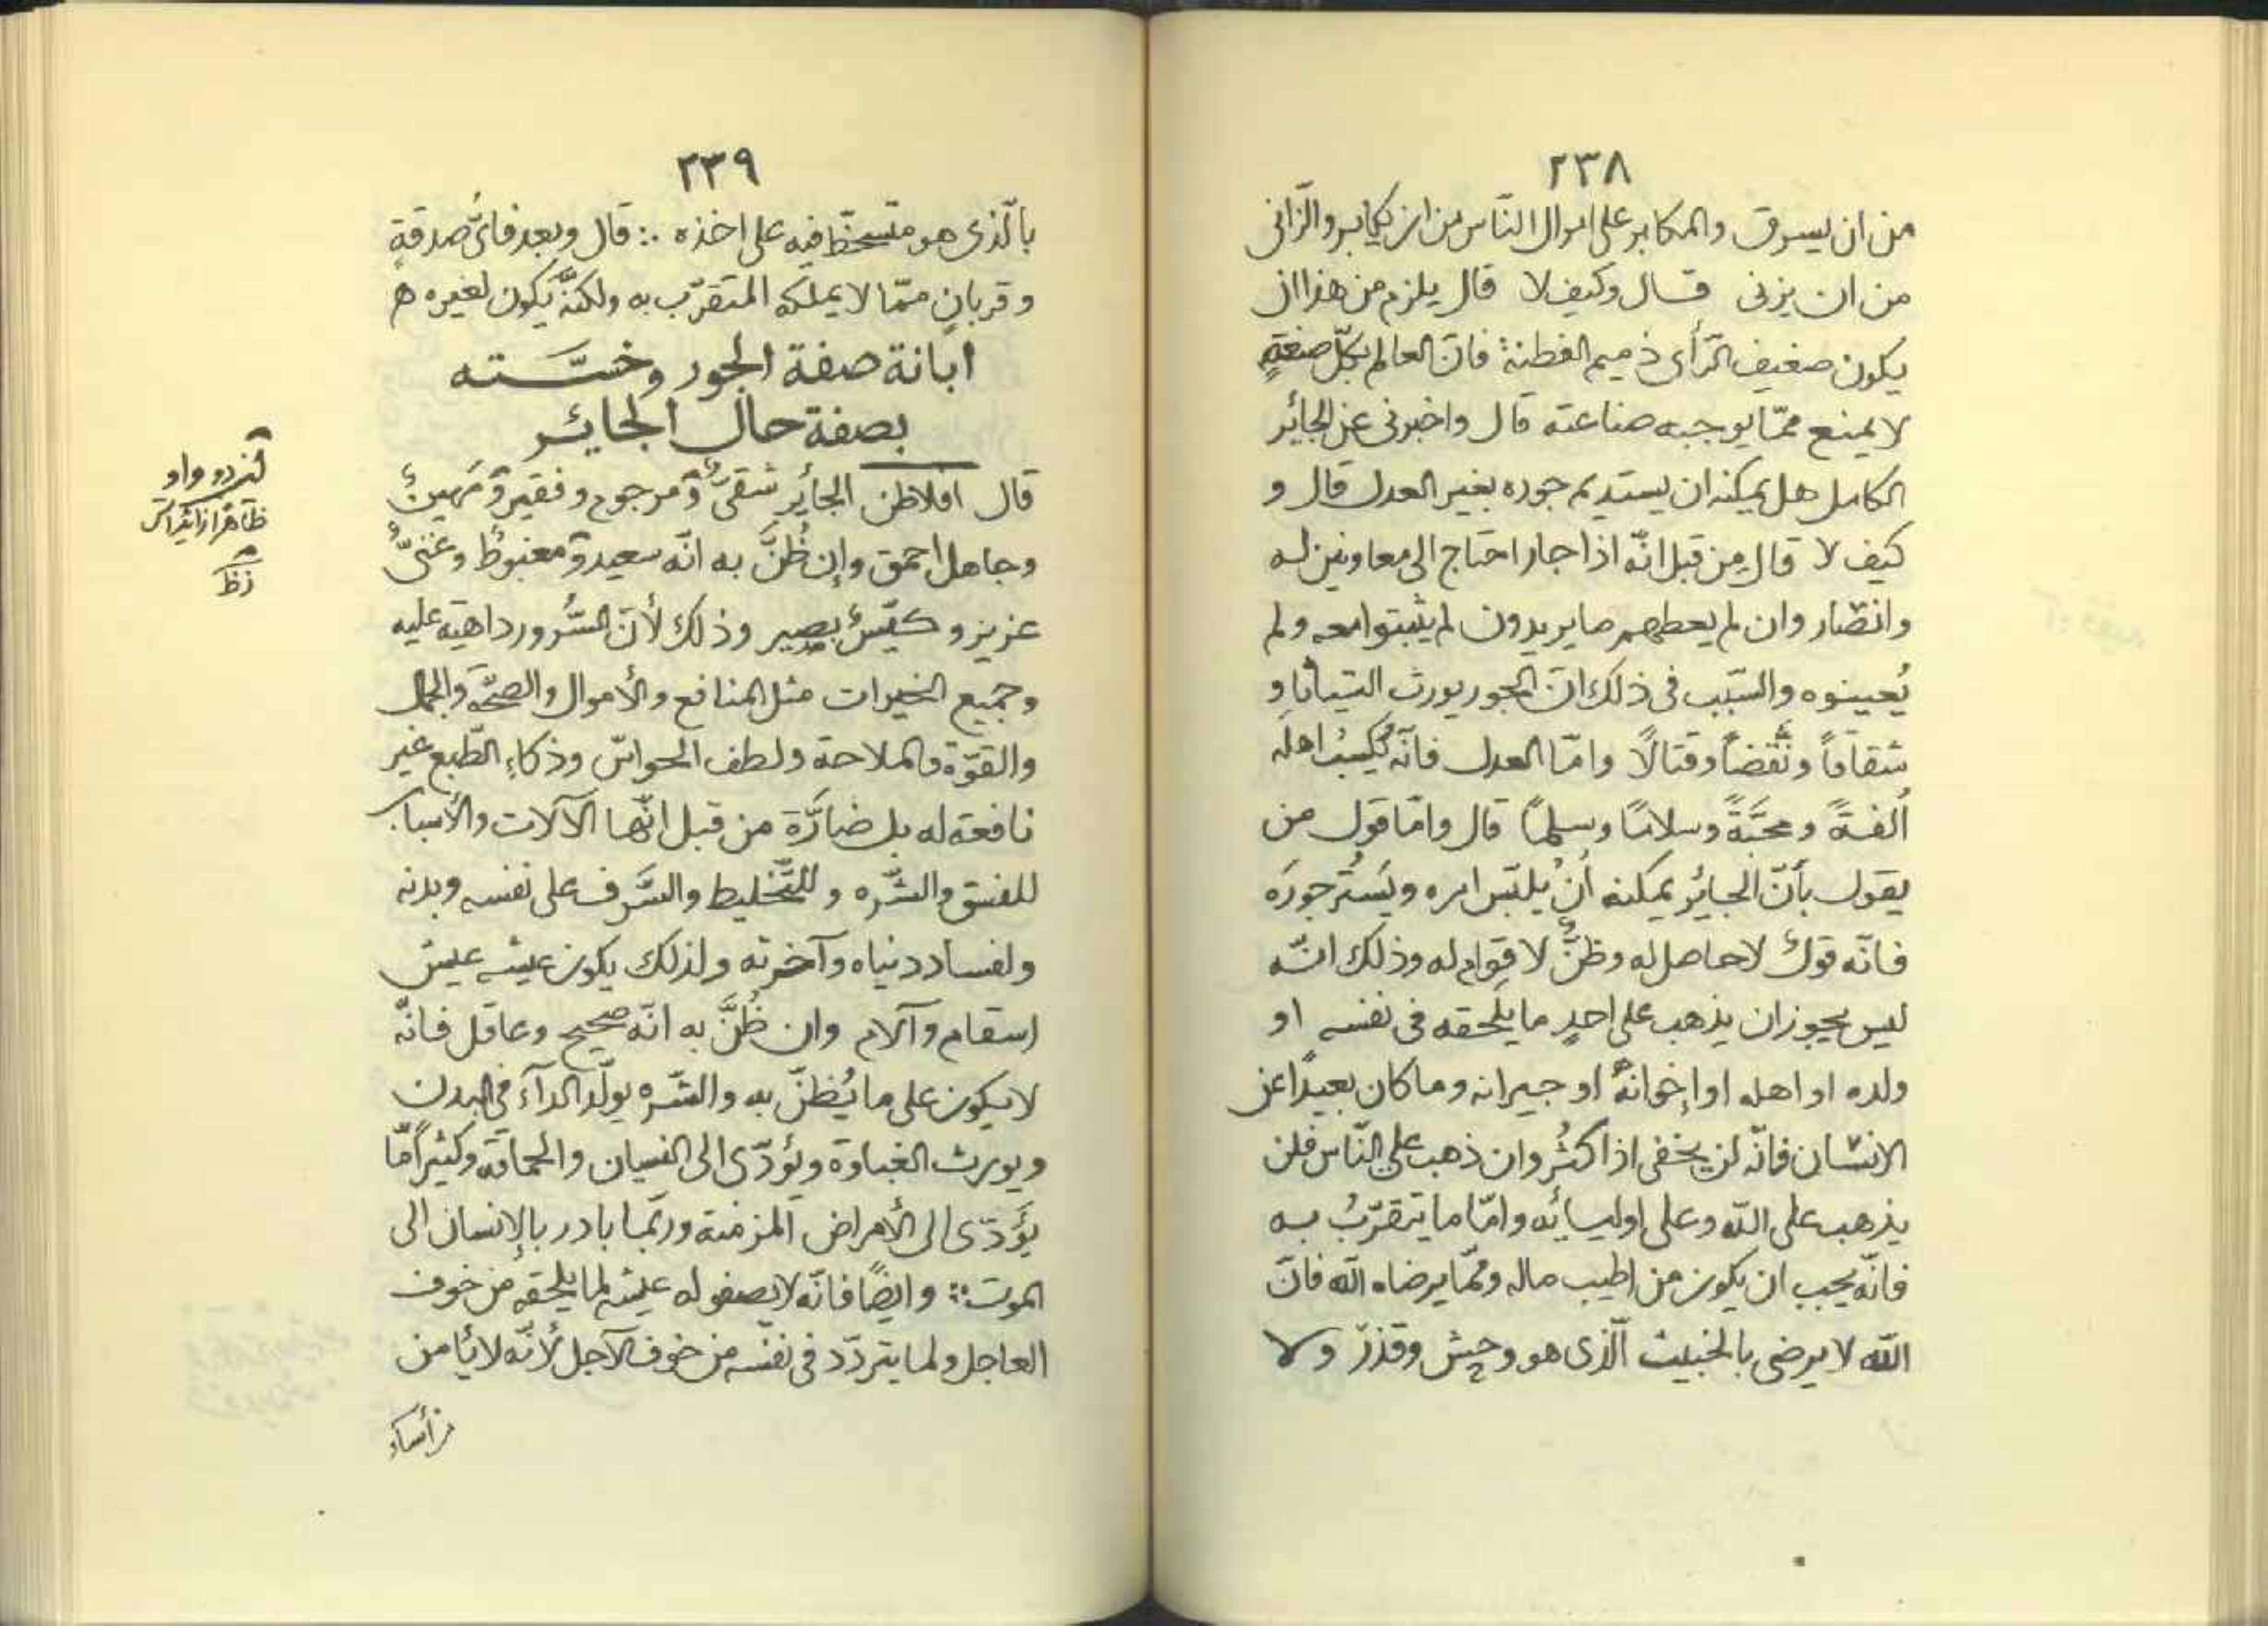 ٢٣٨
من ان يسرق والمكابر على اموال النّاس من ان يكابر والزّانى
من ان يزنى قال وكيف لا قال يلزم من هذا ان
يكون ضعيف الرّأى ذميم الفطنة فانّ العالم بكلّ صنعةٍ
لا يمنع ممّا يوجبه صناعته قال واخبرنى عن الجائر
الكامل هل يمكنه ان يستديم جوره بغير العدل قال و
كيف لا قال مِن قبل انّه اذا جار احتاج الى معاونين له
وانصار وان لم يعطهم ما يريدون لم يثبتوا معه ولم
يُعينوه والسّبب فى ذلك انّ الجور يورث التباينا و
شقاقاً ونقضاً وقتالًا وامّا العدل فانّه يُكسِبُ اهلَه
أُلفةً ومحبّةً وسلامًا وسِلمًا قال وامّا قول من
يقول بأنّ الجائر يمكنه أنْ يلبّس امره ويَستُر جورَه
فانّه قولٌ لا حاصل له وظنٌّ لا قِوام له وذلك انّه
ليس يجوز ان يذهب على احدٍ ما يلحقه فى نفسه او
ولده او اهله او إخوانه او جيرانه وما كان بعيداً عن
الانسان فانّه لن يخفى اذا كثُر وان ذهب على النّاس فلن
يذهب على اللّه وعلى اوليائه وامّا ما يتقرّبُ به
فانّه يجب ان يكون من اطيب ماله وممّا يرضاه اللّه فانّ
اللّه لا يرضى بالخبيث الّذى هو وحِشٌ وقذرٌ ولا
٢٣٩
بالّذى هو متسخّط فيه على اخذه ∴ قال وبعد فائّ صدقةٍ
وقربانٍ ممّا لا يملكه المتقرّب به ولكنّه يكون لغيره ه
ابانة صفة الجور وخسّته
بصفة حال الجائر
قال افلاطن الجأير شقىٌّ ومرجوم وفقير ومَهينٌ
وجاهل احمق وإن ظُنَّ به انّه سعيد ومغبوطٌ وغنىٌّ
عزيز وكيّسٌ بصير وذلك لأنّ الشُّرور داهية عليه
وجميع الخيرات مثل المنافع والأموال والصحّة والجمال
والقوّة والملاحة ولطف الحواسّ وذكاءِ الطّبع غير
نافعة له بل ضارَّة من قبل انّها الآلات والأسباب
للفسق والشّره وللتّخليط والسَّرف على نفسه وبدنه
ولفساد دنياه وآخرته ولذلك يكون عيشه عيش
اسقام وآلام وان ظُنَّ به انّه صحيح وعاقل فانّه
لا يكون على ما يُظنّ به والشّره يولّد الدآء فى البدن
ويورث الغباوة ويؤدّى الى النسيان والحماقة وكثيراً مّا
يؤَدّى الى الأمراض المزمنة وربّما بادر بالإنسان الى
الموت ∴ وايضًا فانّه لا يصفو له عيشه لما يلحقه من خوف
العاجل ولما يتردّد فى نفسه من خوف الآجل لأنّه لا يأمن
دو واو